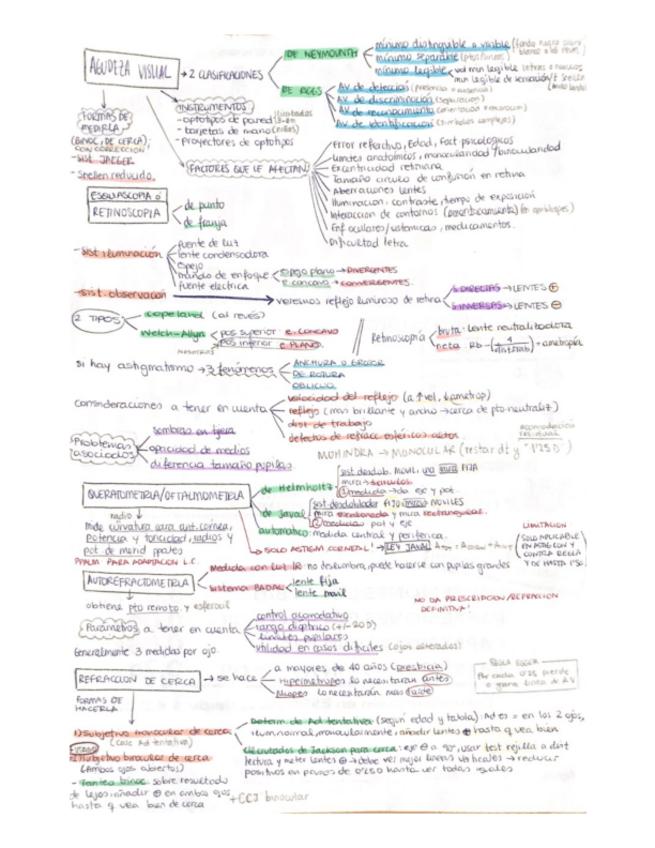 AGUDEZA VISUAL → 2 CLASIFICACIONES
DE NEYMOUNTH
mínimo distinguible o visible (fondo negro sobre
mínimo separable (ptos/líneas)
mínimo legible
DE AGES
AV de detección (presencia o ausencia)
AV de discriminación (separación)
AV de reconocimiento
AV de identificación (símbolos complejos)
FORMAS DE MEDIRLA
(BINOC, DE CERCA)
CON CORRECCIÓN
- SIST JAEGER
- Snellen reducido.
INSTRUMENTOS
- optotipos de pared
- tarjetas de mano (niños)
- proyectores de optotipos
FACTORES QUE LE AFECTAN
Error refractivo, Edad, Fact psicológicos
Límites anatómicos, monocularidad/binocularidad
Excentricidad retiniana
Tamaño círculo de confusión en retina
Aberraciones lentes
Iluminación, contraste, tiempo de exposición
Interacción de contornos (amontonamiento) (en ambliopes)
Enf oculares/sistémicas, medicamentos.
Dificultad letra
ESQUIASCOPIA O
RETINOSCOPIA
de punto
de franja
- sist iluminación
fuente de luz
lente condensadora
espejo
mando de enfoque
espejo plano → DIVERGENTES
e. cóncavo → CONVERGENTES
fuente eléctrica
- sist. observación → veremos reflejo luminoso de retina
S DIRECTAS → LENTES ⊕
S INVERSAS → LENTES ⊖
2 TIPOS
copeland (al revés)
Welch-Allyn
pos superior e. CÓNCAVO
pos inferior e PLANO.
NOSOTROS
Retinoscopía
bruta: lente neutralizadora
neta
= ametropía
Si hay astigmatismo → 3 fenómenos
ANCHURA O GROSOR
DE ROTURA
OBLICUO
Consideraciones a tener en cuenta
velocidad del reflejo (a ↑vel, ↓ametrop)
reflejo (mas brillante y ancho → cerca de pto neutraliz)
dist de trabajo
defectos de refracc esféricos altos
Problemas asociados
sombras en tijera
opacidad de medios
diferencia tamaño pupilas.
MOHINDRA → MONOCULAR (restar dt y "1'25D")
acomodación residual
QUERATOMETRÍA/OFTALMOMETRÍA
de Helmholtz:
sist desdob. MÓVIL, una mira FIJA
mira → círculos
① medida → da eje y pot.
de Javal
sist desdoblador FIJO, miras MÓVILES
mira escalonada y mira rectangular.
② medidas pot y eje
automático: medida central y periférica.
radio
mide curvatura cara ant. córnea,
potencia y toricidad, radios y
pot de merid ppales
PPALM PARA ADAPTACIÓN L.C.
→ SOLO ASTIGM CORNEAL! → LEY JAVAL
LIMITACIÓN
SOLO APLICABLE
EN ASTIG CON Y
CONTRA REGLA
Y DE HASTA 1'50.
AUTOREFRACTOMETRÍA
Medida con luz IR: no deslumbra, puede hacerse con pupilas grandes
sistema BADAL
lente fija
lente móvil
NO DA PRESCRIPCIÓN/REFRACCIÓN
DEFINITIVA!
obtiene pto remoto y esferocil
Parámetros a tener en cuenta
control acomodativo
rango dióptrico (+/- 20 D)
límites pupilares
utilidad en casos difíciles (ojos alterados)
Generalmente 3 medidas por ojo.
REFRACCIÓN DE CERCA → se hace
a mayores de 40 años (presbicia)
Hipermétropes lo necesitarán antes
Miopes lo necesitarán más tarde
REGLA EGGER
Por cada 0'25 pierde
o gana línea de AV
FORMAS DE
HACERLA
1) Subjetivo monocular de cerca
(calc Ad tentativa)
Determ. de Ad tentativa (según edad y tabla): Ad es = en los 2 ojos,
ilum.normal, monocularmente, añadir lentes ⊕ hasta q vea bien
C.Cruzados de Jackson para cerca: eje ⊖ a 90°, usar test rejilla a dist
lectura y meter lentes ⊕ → debe ver mejor líneas verticales → reducir
positivos en pasos de 0'250 hasta ver todas iguales
2) Subjetivo binocular de cerca
(Ambos ojos abiertos)
- Tanteo binoc: sobre resultado
de lejos: añadir ⊕ en ambos ojos
hasta q vea bien de cerca
+CCJ binocular